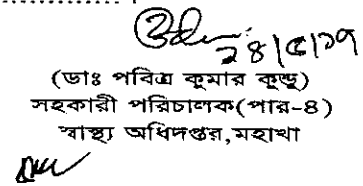 ২৪/৫/১৭
(ডাঃ পবিত্র কুমার কুন্ডু)
সহকারী পরিচালক(পার-৪)
স্বাস্থ্য অধিদপ্তর,মহাখা